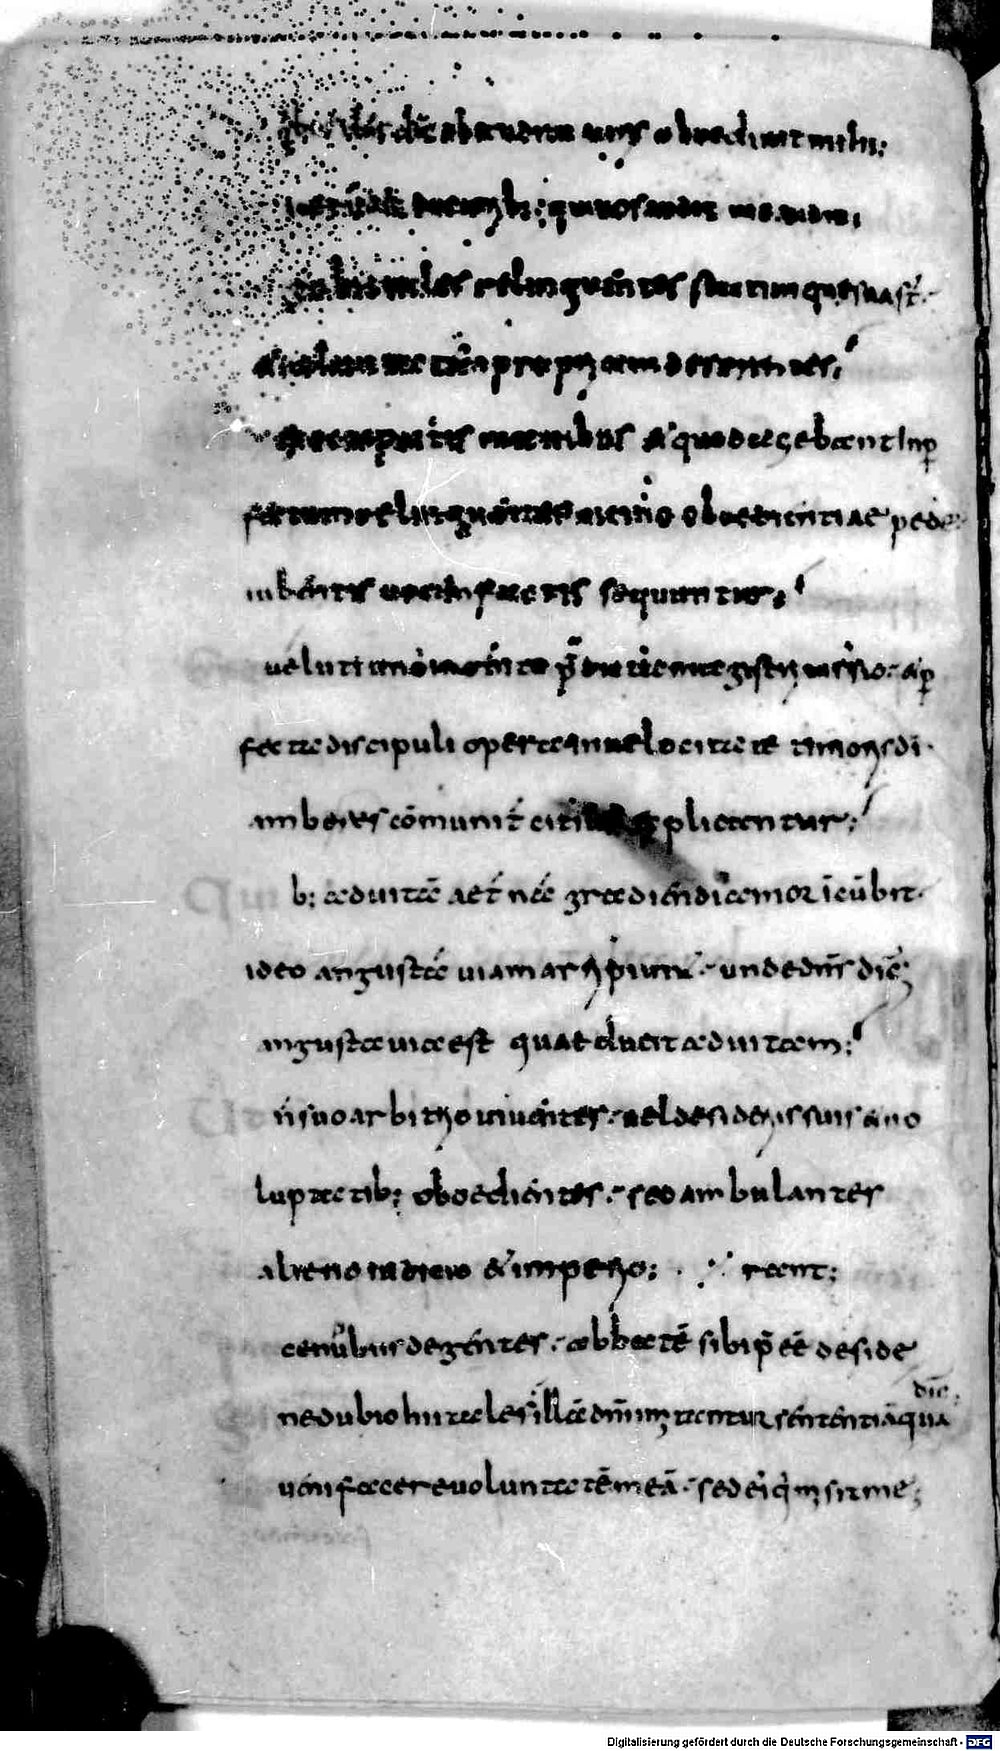 dic ab auditu auris oboediuit mihi;
qui uos audit me audit;
relinquentes statim quae sua st
& uoluntatē propriam deserentes;
manibus & quod agebant Inp
fectum relinquentes uicino oboedientiae pede
iubentis uocem factis sequuntur;
ueluti uno momento p̄dicta magistri iussio: & p
fecta discipuli opera in uelocitate timoris dī
ambe res cōmunit́ citi plicantur;
b; ad uitā aet́nā gradiendi amor īcūbit.
ideo angustā uiam arripiunt. unde dn̄s dic̄;
angusta uia est quae ducit ad uitam;
ń suo arbitrio uiuentes. uel desideriis suis & uo
luptatib; oboedientes. sed ambulantes
alieno iudicio & imperio; reant;
cenubiis degentes. abbatē sibi p̄éē deside
ne dubio hii tales illā dn̄i imitantur sententiā qua
dic̄
ueni facere uoluntatē meā. sed ei' q̇ misit me;
Digitalisierung gefördert durch die Deutsche Forschungsgemeinschaft - DFG